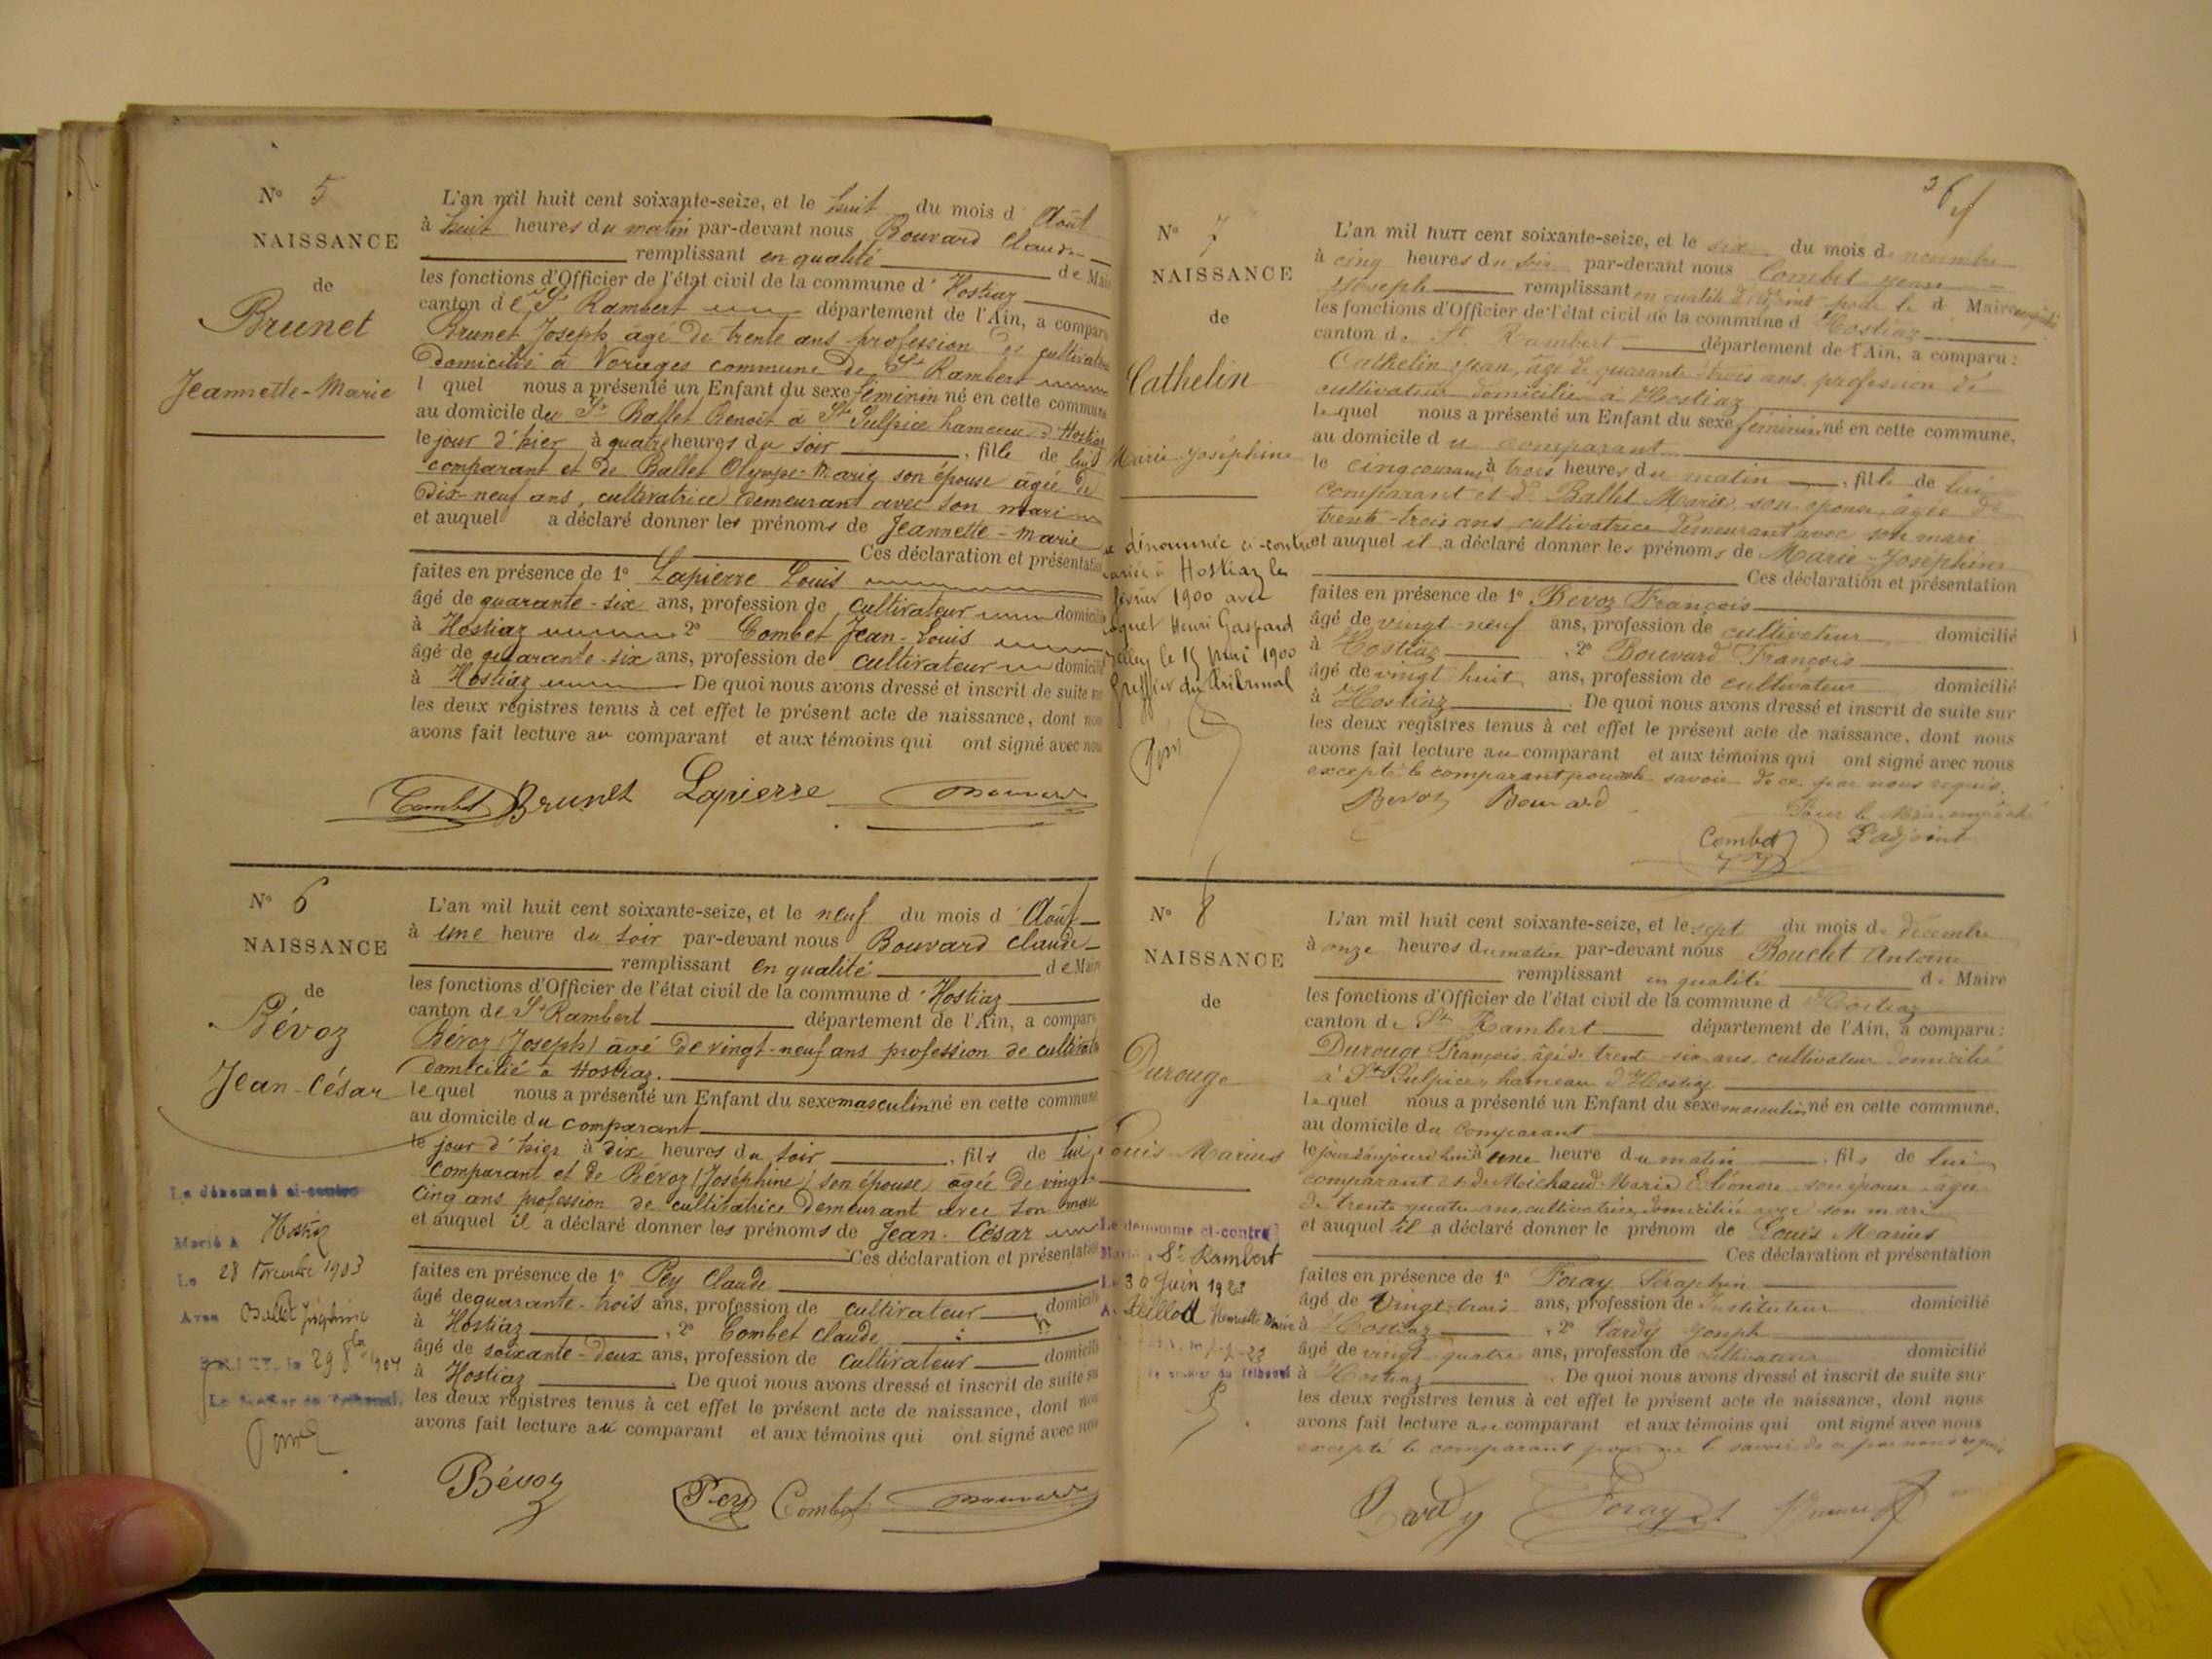 N° 5
NAISSANCE
de
Brunet
Jeannette-Marie
L'an mil huit cent soixante-seize, et le huit du mois d' Août
à huit heures du matin par-devant nous Bouvard Claude
remplissant en qualité de Mai
les fonctions d'Officier de l'état civil de la commune d' Hostiaz
canton de St Rambert département de l'Ain, a comparu
Brunet Joseph âgé de trente ans profession de cultivateur
domicilié à Vorages commune de St Rambert
l quel nous a présenté un Enfant du sexe féminin né en cette commune
au domicile du Sr Ballet Benoit à St Sulpice hameau d'Hostiaz
le jour d'hier à quatre heures du soir , fille de lui
comparant et de Ballet Olympe-Marie son épouse âgée de
dix-neuf ans, cultivatrice demeurant avec son mari
et auquel a déclaré donner les prénoms de Jeannette-Marie
Ces déclaration et présentation
faites en présence de 1° Lapierre Louis
âgé de quarante-six ans, profession de cultivateur domicilié
à Hostiaz 2° Combet Jean-Louis
âgé de quarante-six ans, profession de cultivateur domicilié
à Hostiaz De quoi nous avons dressé et inscrit de suite su
les deux registres tenus à cet effet le présent acte de naissance, dont nou
avons fait lecture au comparant et aux témoins qui ont signé avec nou
Combet Brunet Lapierre Bouvard
N° 6
NAISSANCE
de
Bévoz
Jean-César
Le dénommé ci-contre
Marié à Hostiaz
Le 28 Novembre 1903
Avec Ballet Joséphine
le 29 1904
Le Greffier du Tribunal,
L'an mil huit cent soixante-seize, et le neuf du mois d' Août
à une heure du soir par-devant nous Bouvard Claude
remplissant en qualité de Maire
les fonctions d'Officier de l'état civil de la commune d' Hostiaz
canton de St Rambert département de l'Ain, a comparu
Bévoz (Joseph) âgé de vingt-neuf ans profession de cultivate
domicilié à Hostiaz.
le quel nous a présenté un Enfant du sexe masculin né en cette commune
au domicile du comparant
le jour d'hier à dix heures du soir , fils de lui
comparant et de Bévoz (Joséphine) son épouse âgée de vingt-
cinq ans profession de cultivatrice demeurant avec son mari
et auquel il a déclaré donner les prénoms de Jean-César
Ces déclaration et présentation
faites en présence de 1° Pey Claude
âgé de quarante-trois ans, profession de cultivateur domicilié
à Hostiaz , 2° Combet Claude
âgé de soixante-deux ans, profession de cultivateur domicilié
à Hostiaz . De quoi nous avons dressé et inscrit de suite su
les deux registres tenus à cet effet le présent acte de naissance, dont nou
avons fait lecture au comparant et aux témoins qui ont signé avec nou
Bévoz Pey Combet Bouvard
N° 7
NAISSANCE
de
Cathelin
Marie-Joséphine
dénommée ci-contre
mariée à Hostiaz le
février 1900 avec
Henri Gaspard
le 15 Mai 1900
Greffier du Tribunal
L'an mil huit cent soixante-seize, et le six du mois de novembre
à cinq heures du soir par-devant nous Combet Jean
Joseph remplissant en qualité d'adjoint pour le d Maire empêché
les fonctions d'Officier de l'état civil de la commune d Hostiaz
canton de St Rambert département de l'Ain, a comparu :
Cathelin Jean, âgé de quarante-trois ans, profession de
cultivateur domicilié à Hostiaz
le quel nous a présenté un Enfant du sexe féminin né en cette commune,
au domicile du comparant
le cinq courant à trois heures du matin , fille de lui
comparant et de Ballet Marie son épouse, âgée de
trente-trois ans cultivatrice demeurant avec son mari
et auquel il a déclaré donner les prénoms de Marie-Joséphine
Ces déclaration et présentation
faites en présence de 1° Bévoz François
âgé de vingt-neuf ans, profession de cultivateur domicilié
à Hostiaz , 2° Bouvard François
âgé de vingt huit ans, profession de cultivateur domicilié
à Hostiaz . De quoi nous avons dressé et inscrit de suite sur
les deux registres tenus à cet effet le présent acte de naissance, dont nous
avons fait lecture au comparant et aux témoins qui ont signé avec nous
excepté le comparant pour ne le savoir de ce par nous requis.
Bevoz Bouvard
Pour le Maire empêché
Combet L'adjoint
N° 8
NAISSANCE
de
Durouge
Louis Marius
Le dénommé ci-contre
Marié à St Rambert
Le 30 Juin 1923
Henriette Marie
Le greffier du Tribunal
L'an mil huit cent soixante-seize, et le sept du mois de décembre
à onze heures du matin par-devant nous Bouclet Antoine
remplissant en qualité de Maire
les fonctions d'Officier de l'état civil de la commune d Hostiaz
canton de St Rambert département de l'Ain, a comparu :
Durouge François, âgé de trente-six ans, cultivateur domicilié
à St Sulpice, hameau d'Hostiaz
le quel nous a présenté un Enfant du sexe masculin né en cette commune,
au domicile du comparant
le jour d'aujourd'hui à une heure du matin , fils de lui
comparant et de Michaud Marie Eléonore son épouse, âgée
de trente quatre ans, cultivatrice, domiciliée avec son mari
et auquel il a déclaré donner le prénom de Louis Marius
Ces déclaration et présentation
faites en présence de 1° Foray Séraphin
âgé de Vingt-trois ans, profession de Instituteur domicilié
à Hostiaz , 2° Tardy Joseph
âgé de vingt quatre ans, profession de cultivateur domicilié
à Hostiaz . De quoi nous avons dressé et inscrit de suite sur
les deux registres tenus à cet effet le présent acte de naissance, dont nous
avons fait lecture au comparant et aux témoins qui ont signé avec nous
excepté le comparant pour ne le savoir de ce par nous requis
Tardy Foray